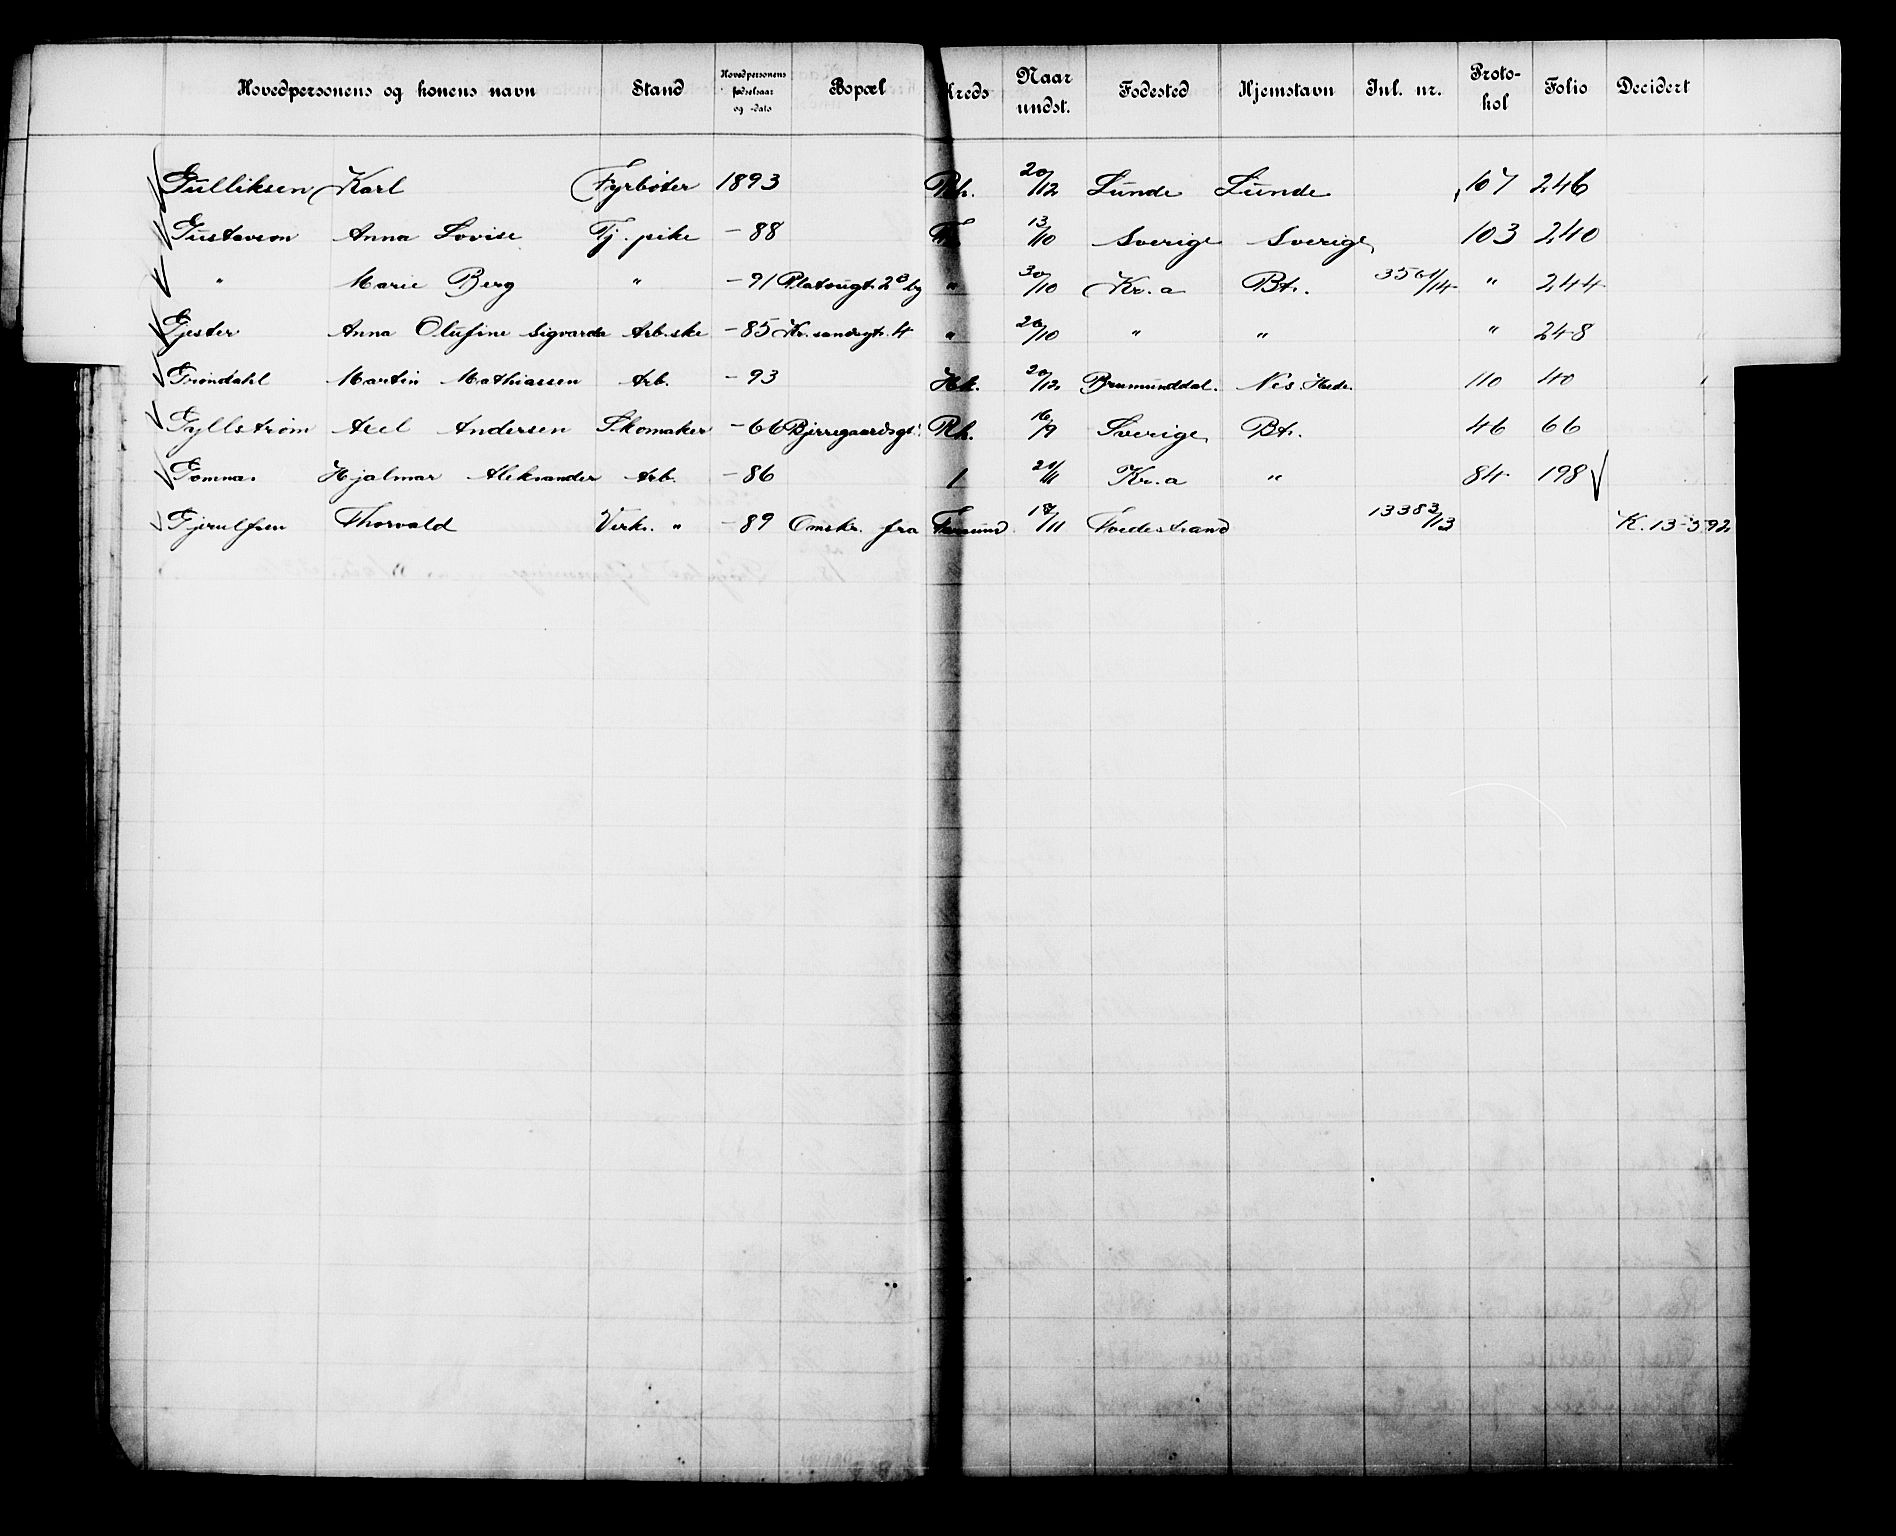 Hovedpersonens og konens navn Stand Hovedpersonens fødselsaar og -dato Bopæl Kreds Naar undst. Fødested Hjemstavn Jnl. nr. Proto-kol Folio Decidert
Gulliksen Karl Fyrbøter 1893 Rh. 20/12 Lunde Lunde 107 246
Gustavson Anna Lovise Tj. pike -88 13/10 Sverige Sverige 103 240
" Marie Berg " -91 Platougt. 2 " 30/10 Kr.a Bt. 3561/14 " 244
Gjester Anna Olufine Sigvarda Arb.ske -85 Kr.sandsgt. 4 " 20/10 " " " 248
Grøndahl Martin Mathiassen Arb. -93 Hk. 20/12 Brumunddal. Nes. Hedr. 110 40
Gyllstrøm Axel Andersen Skomaker -66 Bjerregaardsgt. Rh. 16/9 Sverige Bt. 46 66
Gomnæs Hjalmar Aleksander Arb. -86 1 21/11 Kr.a " 84 198
Gjerulfsen Thorvald Verks. " -89 Omskr. fra 18/11 Tvedestrand 13383/13 K. 13-592